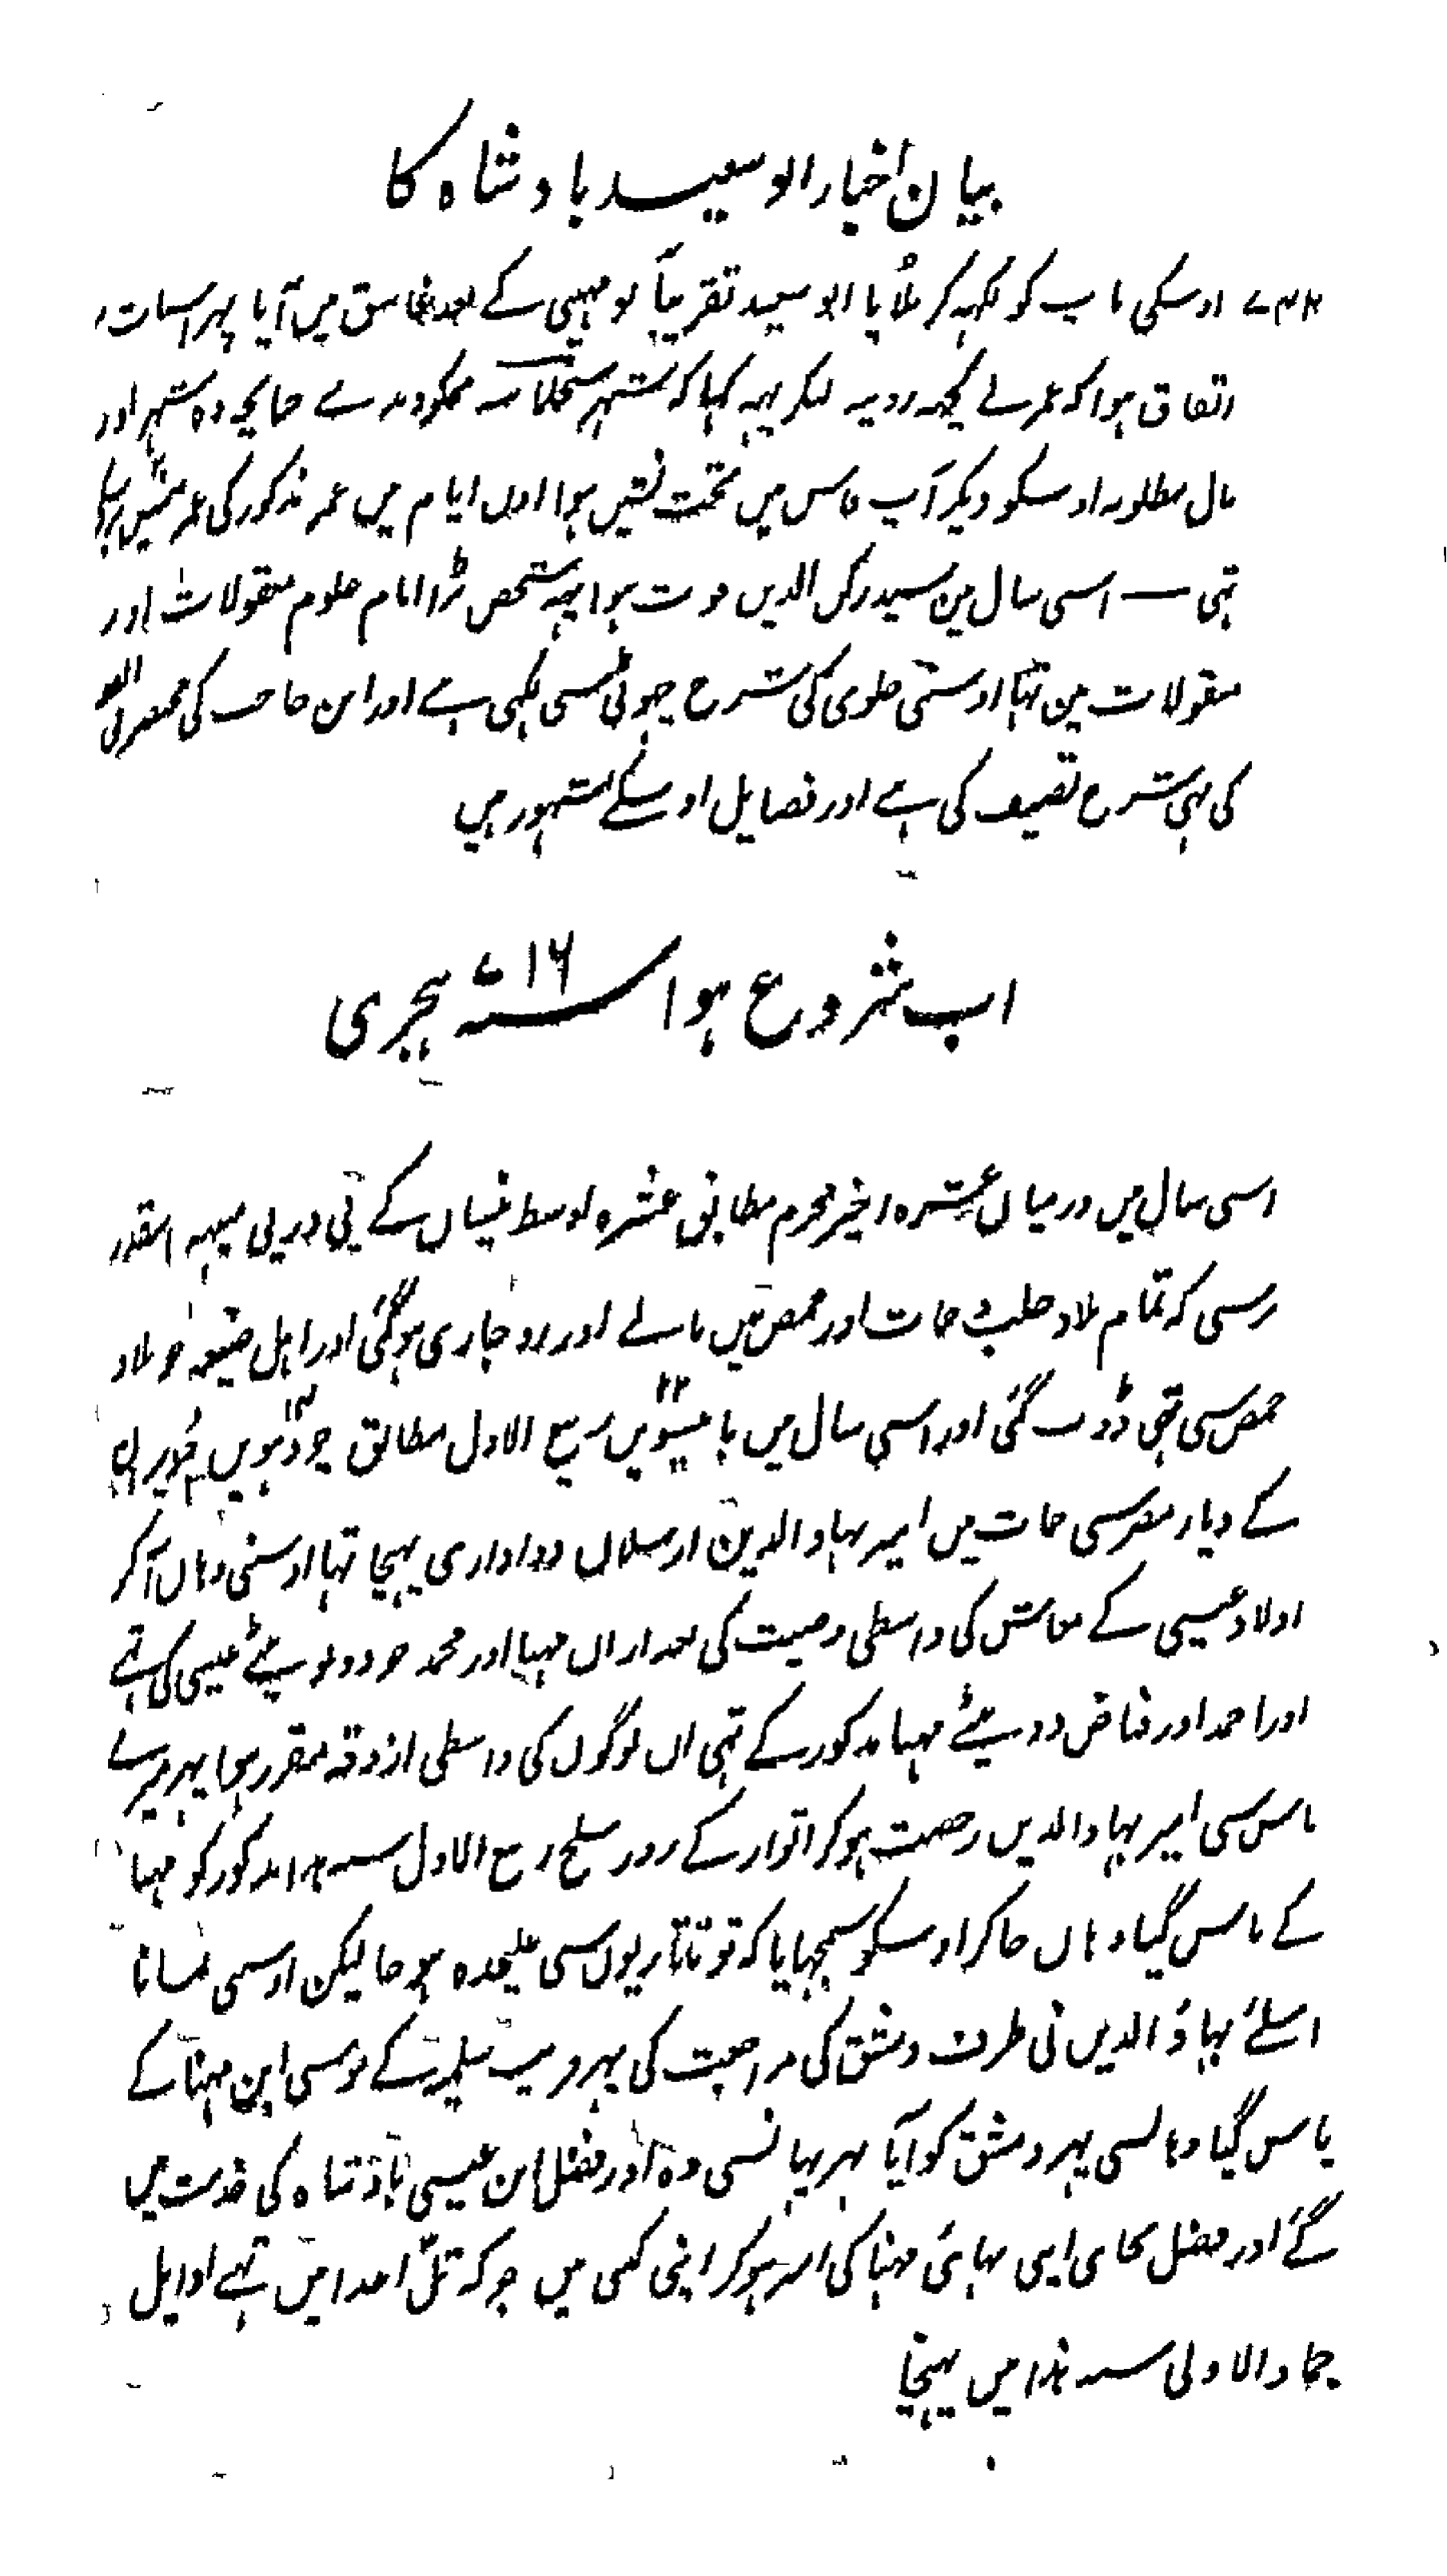 بیان اخبار ابو سعید بادشاہ کا
اوسکی باپ کو لکہہ کر بلُایا ابو سعید تقریباً نو مہینی کے بعد فاس میں آیا پہر اسبات
اتفاق ہوا کہ عمر نے کچہہ روپیہ لیکر یہہ کہا کہ شہر سجلماسہ مجکو دیدے چنانچہ وہ شہر اور
مال مطلوبہ اوسکو دیکر آپ فاس میں تخت نشین ہوا اول ایام میں عمر مذکور کی عمر بیس برسکی
تہی — اسی سال مین سید رکن الدین فوت ہوا یہہ شخص بڑا امام علوم معقولات اور
منقولات مین تہا اوسنی حاوی کی شرح چہوٹی سی لکہی ہے اور ابن حاجب کی مختصر
کی بہی شرح تصنیف کی ہے اور فضایل اوسکے مشہور ہیں
اب شروع ہوا سنہ ۷۱۶ ہجری
اسی سال میں درمیان عشرہ اخیر محرم مطابق عشرہ اوسط نیساں کے پی در پی مینہہ اسقدر
برسی کہ تمام بلاد حلب و حمات اور حمص میں نالے اور رود جاری ہوگئی اور اہل ضیعہ جو بلاد
حمص سی تہی ڈوب گئی اور اسی سال میں بائیسویں ۲۲ ربیع الاول مطابق چودہویں ۱۴ حزیران
کے دیار مصر سی حمات میں امیر بہاو الدین ارسلان دواداری پہنچا تہا اوسنی وہاں آکر
اولاد عیسی کے معاش کی واسطی وصیت کی بعد ازاں مہنا اور محمد جو دونو بیٹے عیسی کی تہے
اور احمد اور فیاض دو بیٹے مہنا مذکور کے تہی ان لوگوں کی واسطی ازوقہ مقرر ہوا پہر میرے
پاس سی امیر بہاو الدیں رخصت ہوکر اتوار کے روز سلخ ربیع الاول سنہ ہذا مذکور کو مہنا
کے پاس گیا وہاں جاکر اوسکو سمجہایا کہ تو تاتاریوں سی علیحدہ ہو جا لیکن اوسی نمانا
اسلئے بہاؤ الدیں نی طرف دمشق کی مراجعت کی پہر قریب سلمیہ کے موسی ابن مہنا کے
پاس گیا وہانسی پہر دمشق کو آیا پہر یہانسی وہ اور فضل ابن عیسی بادشاہ کی خدمت میں
گئے اور فضل بجای اپی بہائی مہنا کی امیر ہوکر اپنی میں جو کہ تل اعدا میں تہے اوایل
جماد الاولی سنہ ہذا میں پہنچا